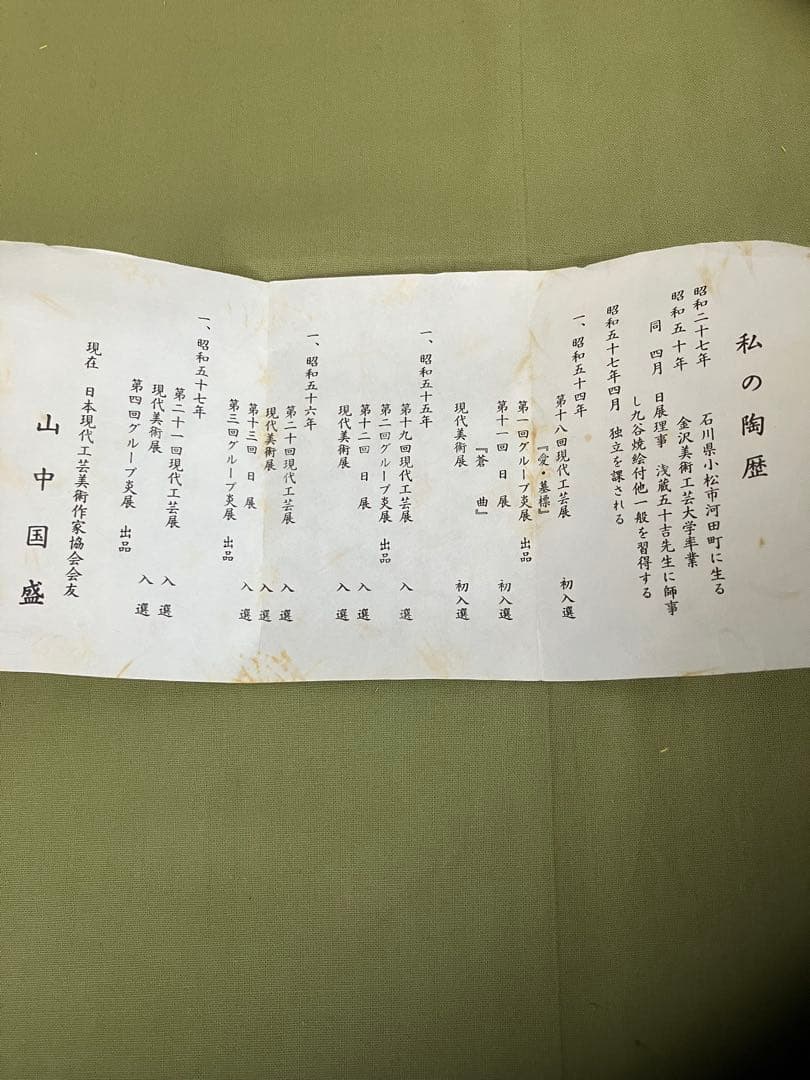 私の陶歴
昭和二十七年 石川県小松市河田町に生る
昭和五十年 金沢美術工芸大学卒業
同 四月 日展理事 浅蔵五十吉先生に師事
し九谷焼絵付他一般を習得する
昭和五十七年四月 独立を課される
一、昭和五十四年
第十八回現代工芸展 初入選
『愛・墓標』
第一回グループ炎展 出品
第十一回 日展 初入選
『蒼曲』
現代美術展 初入選
一、昭和五十五年
第十九回現代工芸展 入選
第二回グループ炎展 出品
第十二回 日展 入選
現代美術展 入選
一、昭和五十六年
第二十回現代工芸展 入選
現代美術展 入選
第十三回 日展 入選
第三回グループ炎展 出品
一、昭和五十七年
第二十一回現代工芸展 入選
現代美術展 入選
第四回グループ炎展 出品
現在 日本現代工芸美術作家協会会友
山中国盛